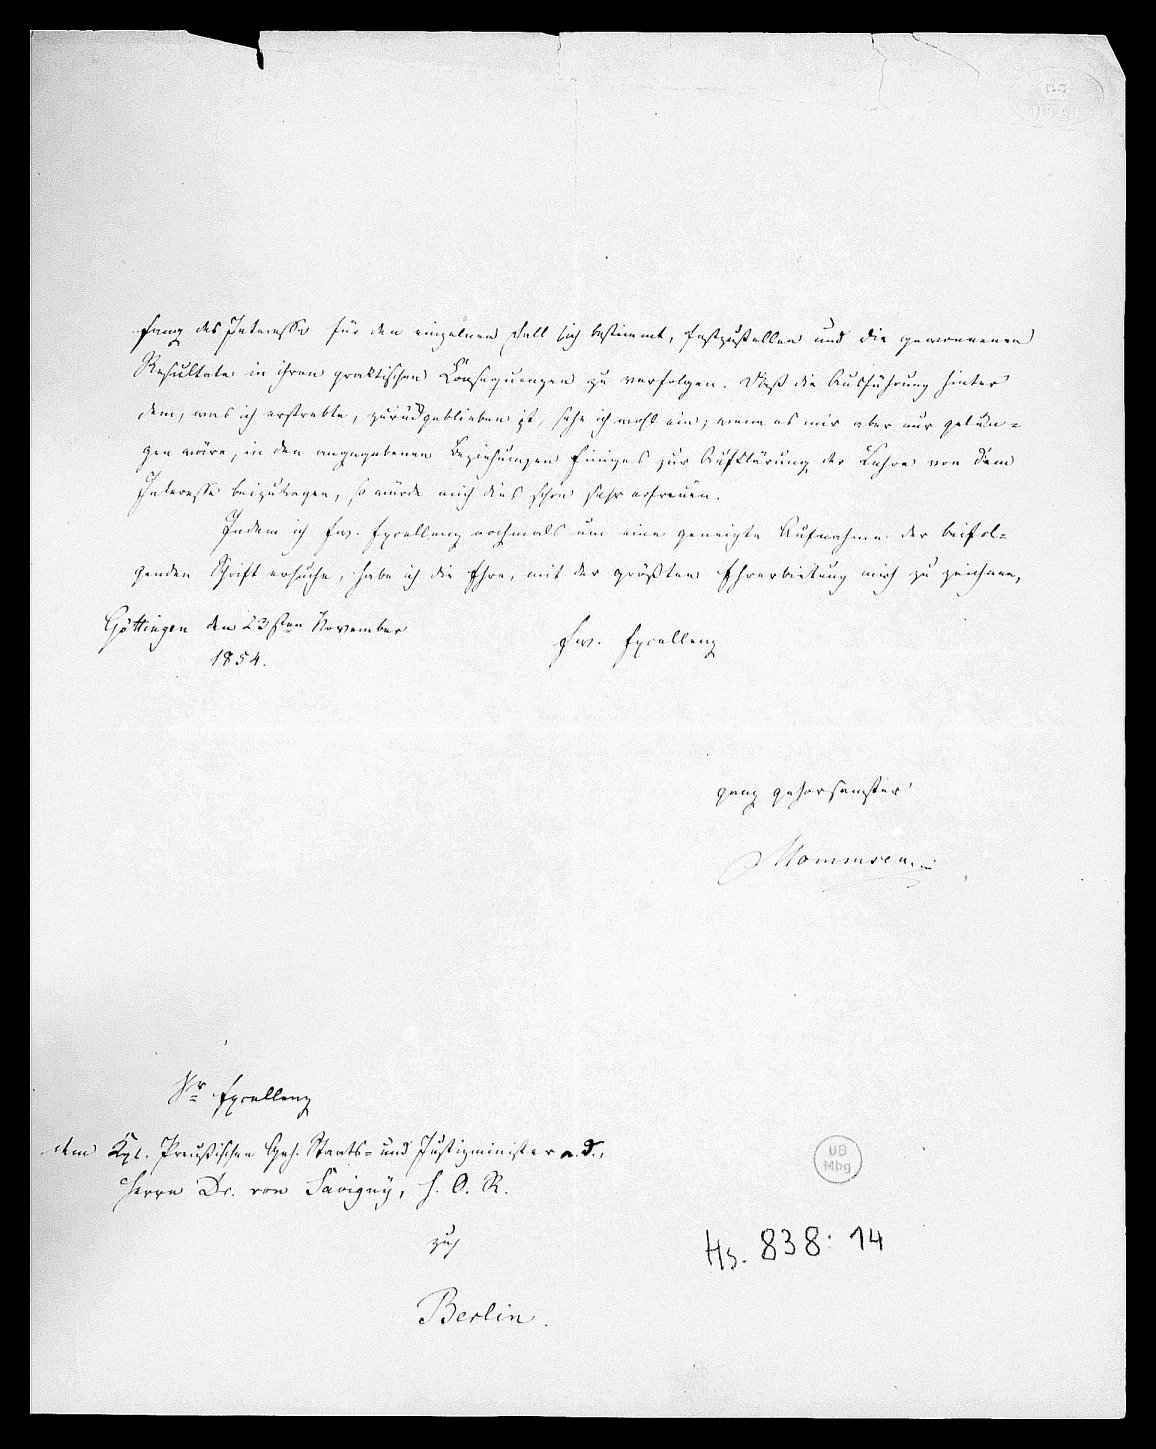 fang des Interesse für den einzelnen Fall sich bestimmt, festzustellen und die gewonnenen
Resultate in ihren praktischen Consequenzen zu verfolgen. Daß die Ausführung hinter
dem, was ich erstrebte, zurückgeblieben ist, sehe ich wohl ein; wenn es mir aber nur gelun-
gen wäre, in den angegebenen Beziehungen Einiges zur Aufklärung der Lehre von dem
Interesse beizutragen, so würde mich dies schon sehr erfreuen.
Indem ich Ew. Excellenz nochmals um eine geneigte Aufnahme der beifol-
genden Schrift ersuche, habe ich die Ehre, mit der größten Ehrerbietung mich zu zeichnen,
Göttingen den 23sten November
1854.
Ew. Excellenz
ganz gehorsamster
Mommsen.
Sr Excellenz
dem Kgl. Preußischen Geh. Staats- und Justizminister a. D.,
Herrn Dr. von Savigny, H. O. R.
zu
Berlin.
UB
Mbg
Hs. 838: 14